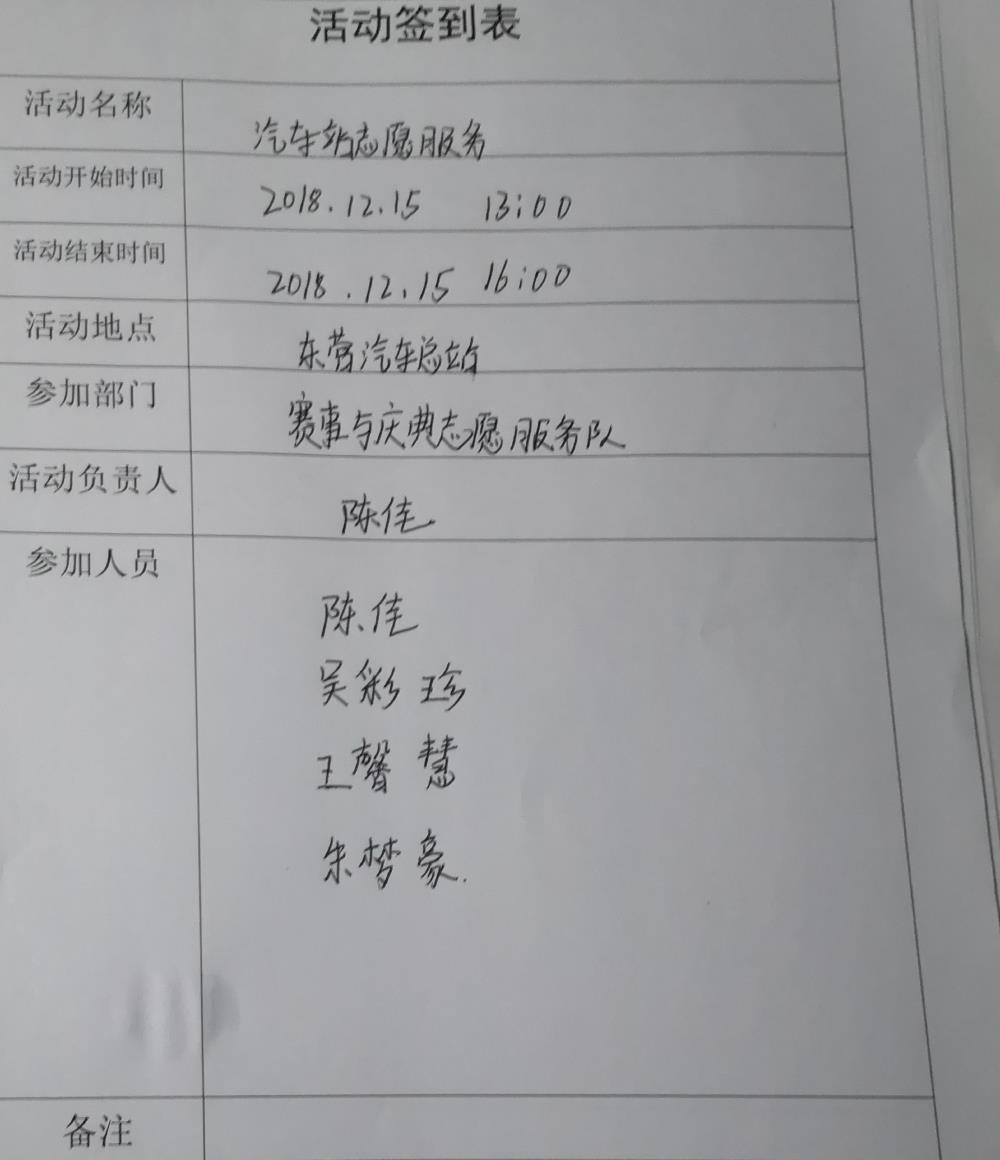 活动签到表
活动名称 汽车站志愿服务
活动开始时间 2018.12.15 13:00
活动结束时间 2018.12.15 16:00
活动地点 东营汽车总站
参加部门 赛事与庆典志愿服务队
活动负责人 陈佳
参加人员 陈佳
吴彩珍
王馨慧
朱梦豪
备注